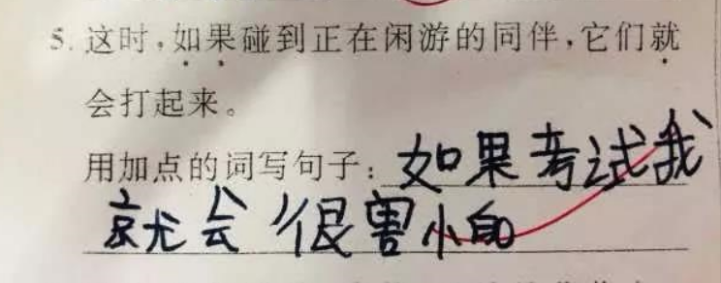 5. 这时，如果碰到正在闲游的同伴，它们就
会打起来。
用加点的词写句子：如果考试我
就会很害小白